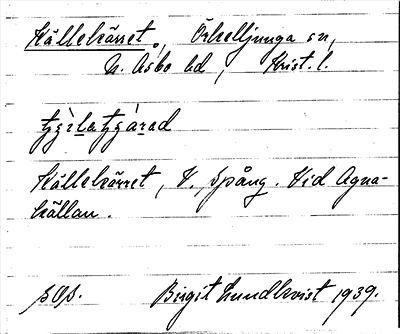 Källekärret, Örkelljunga sn,
N. Åsbo hd, Krist. l.
Källekärret, V. Spång. Vid Agna-
källan.
Birgit Lundkvist 1939.